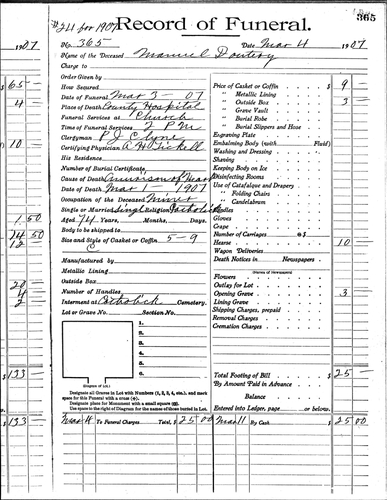 #24 for 1907
Record of Funeral.
365
1907
No. 365
Date Mar 4 1907
Name of the Deceased Manuel
Charge to
Order Given by
How Secured
Date of Funeral Mar 3 - 07
Place of Death County Hospital
Funeral Services at Church
Time of Funeral Services 2 P M
Clergyman P J Clyne
Certifying Physician A H Tickell
His Residence
Number of Burial Certificate
Cause of Death
Date of Death Mar 1 - 1907
Occupation of the Deceased Miner
Single or Married Single Religion Catholick
Aged 74 Years, Months, Days
Body to be shipped to
Size and Style of Casket or Coffin 5-9
C
Manufactured by
Metallic Lining
Outside Box
Number of Handles
Interment at Catholick Cemetery.
Lot or Grave No. Section No.
1.
2.
3.
4.
5.
6.
(Diagram of Lot.)
Designate all Graves in Lot with Numbers (1, 2, 3, 4, etc.), and mark
space for this Funeral with a cross (+).
Designate place for Monument with a small square (□).
Use space to the right of Diagram for the names of those buried in Lot.
Mar 4 To Funeral Charges Total, $ 25 00
Price of Casket or Coffin $ 9
" Metallic Lining
" Outside Box 3
" Grave Vault
" Burial Robe
" Burial Slippers and Hose
Engraving Plate
Embalming Body (with Fluid)
Washing and Dressing
Shaving
Keeping Body on Ice
Disinfecting Rooms
Use of Catafalque and Drapery
" Folding Chairs
" Candelabrum
Candles
Gloves
Crape
Number of Carriages @ $
Hearse 10
Wagon Deliveries
Death Notices in Newspapers
(Names of Newspapers)
Flowers
Outlay for Lot
Opening Grave 3
Lining Grave
Shipping Charges, prepaid
Removal Charges
Cremation Charges
Total Footing of Bill $ 25
By Amount Paid in Advance
Balance
Entered into Ledger, page or below.
Mar 11 By Cash $ 25 00
$ 65
4
10
1 50
74 50
12
20
4
2
$ 133
$ 133